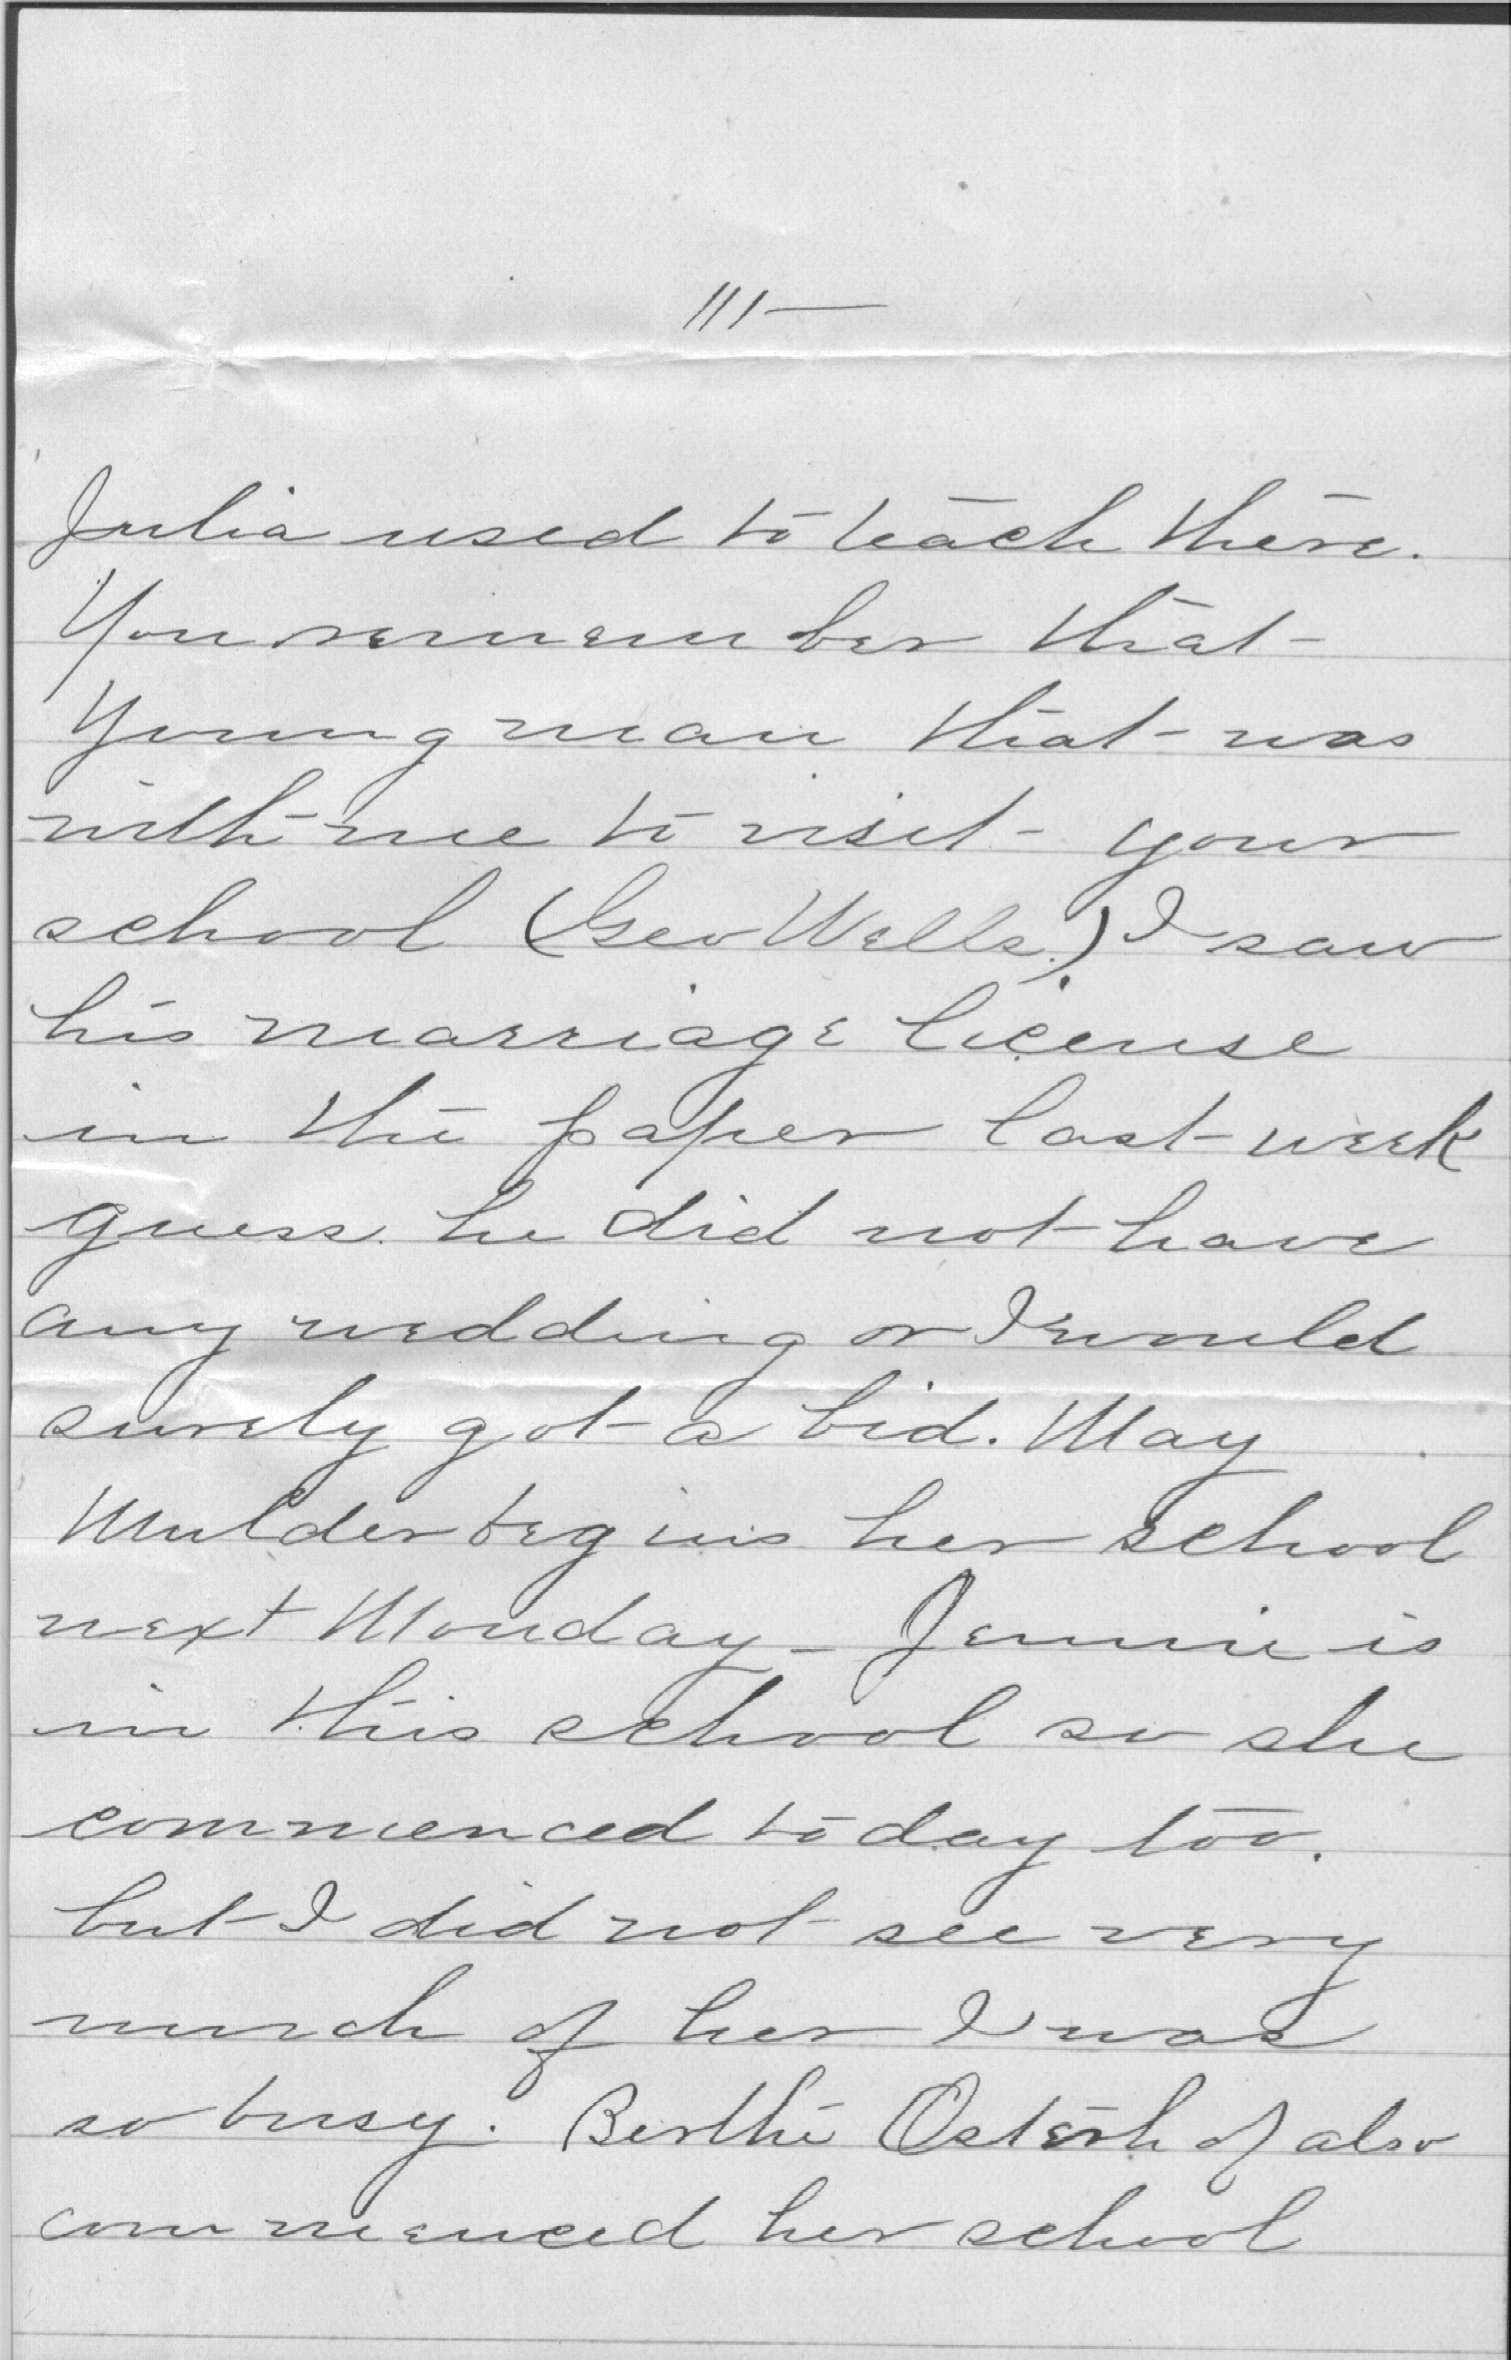 III—
Julia used to teach there.
You remember that
Young man that was
with me to visit your
school (Geo Wells.) I saw
his marriage license
in the paper last week
guess he did not have
any wedding or I would
surely got a bid. May
Mulder begins her school
next Monday – Jennie is
in this school so she
commenced today too.
but I did not see very
much of her I was
so busy. Berthe Osterhof also
commenced her school